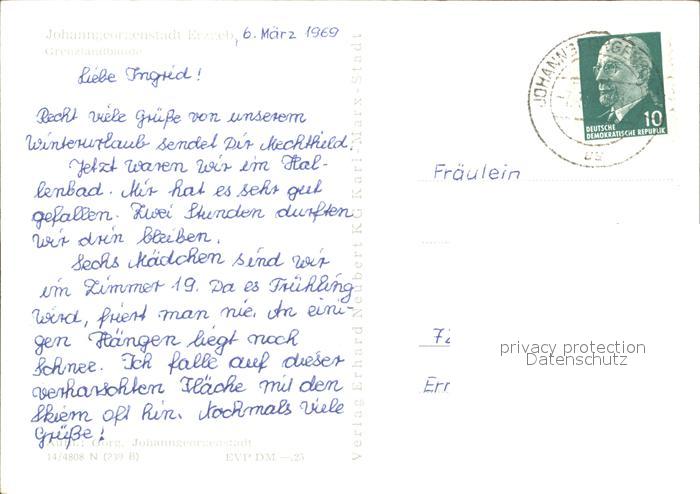 Johanngeorgenstadt Erzgeb.
, 6. März 1969
Grenzlandbaude
Liebe Ingrid!
Recht viele Grüße von unserem
Winterurlaub sendet Dir Mechthild.
Jetzt waren wir im Hal-
lenbad. Mir hat es sehr gut
gefallen. Zwei Stunden durften
wir drin bleiben.
Sechs Mädchen sind wir
im Zimmer 19. Da es Frühling
wird, friert man nie. An eini-
gen Hängen liegt noch
Schnee. Ich falle auf dieser
verharschten Fläche mit den
Skiern oft hin. Nochmals viele
Grüße!
Aufn.: Görg, Johanngeorgenstadt
14/4808 N (239 B) EVP DM —.25
Verlag Erhard Neubert KG Karl-Marx-Stadt
10
DEUTSCHE
DEMOKRATISCHE REPUBLIK
Fräulein
privacy protection
Datenschutz